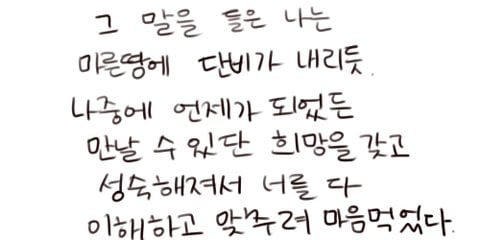 그 말을 들은 나는
마른땅에 단비가 내리듯.
나중에 언제가 되었든
만날 수 있단 희망을 갖고
성숙해져서 너를 다
이해하고 맞추려 마음먹었다.